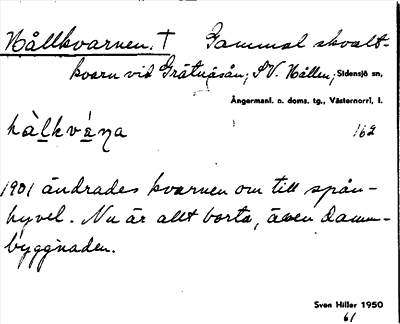 Hållkvarnen. † Gammal skvalt-
kvarn vid Grätnäsån, SV. Hållen, Sidensjö sn,
Ångermanl. n. doms. tg., Västernorrl. l.
162
1901 ändrades kvarnen om till spån-
hyvel. Nu är allt borta, även damm-
byggnaden.
Sven Hiller 1950
61